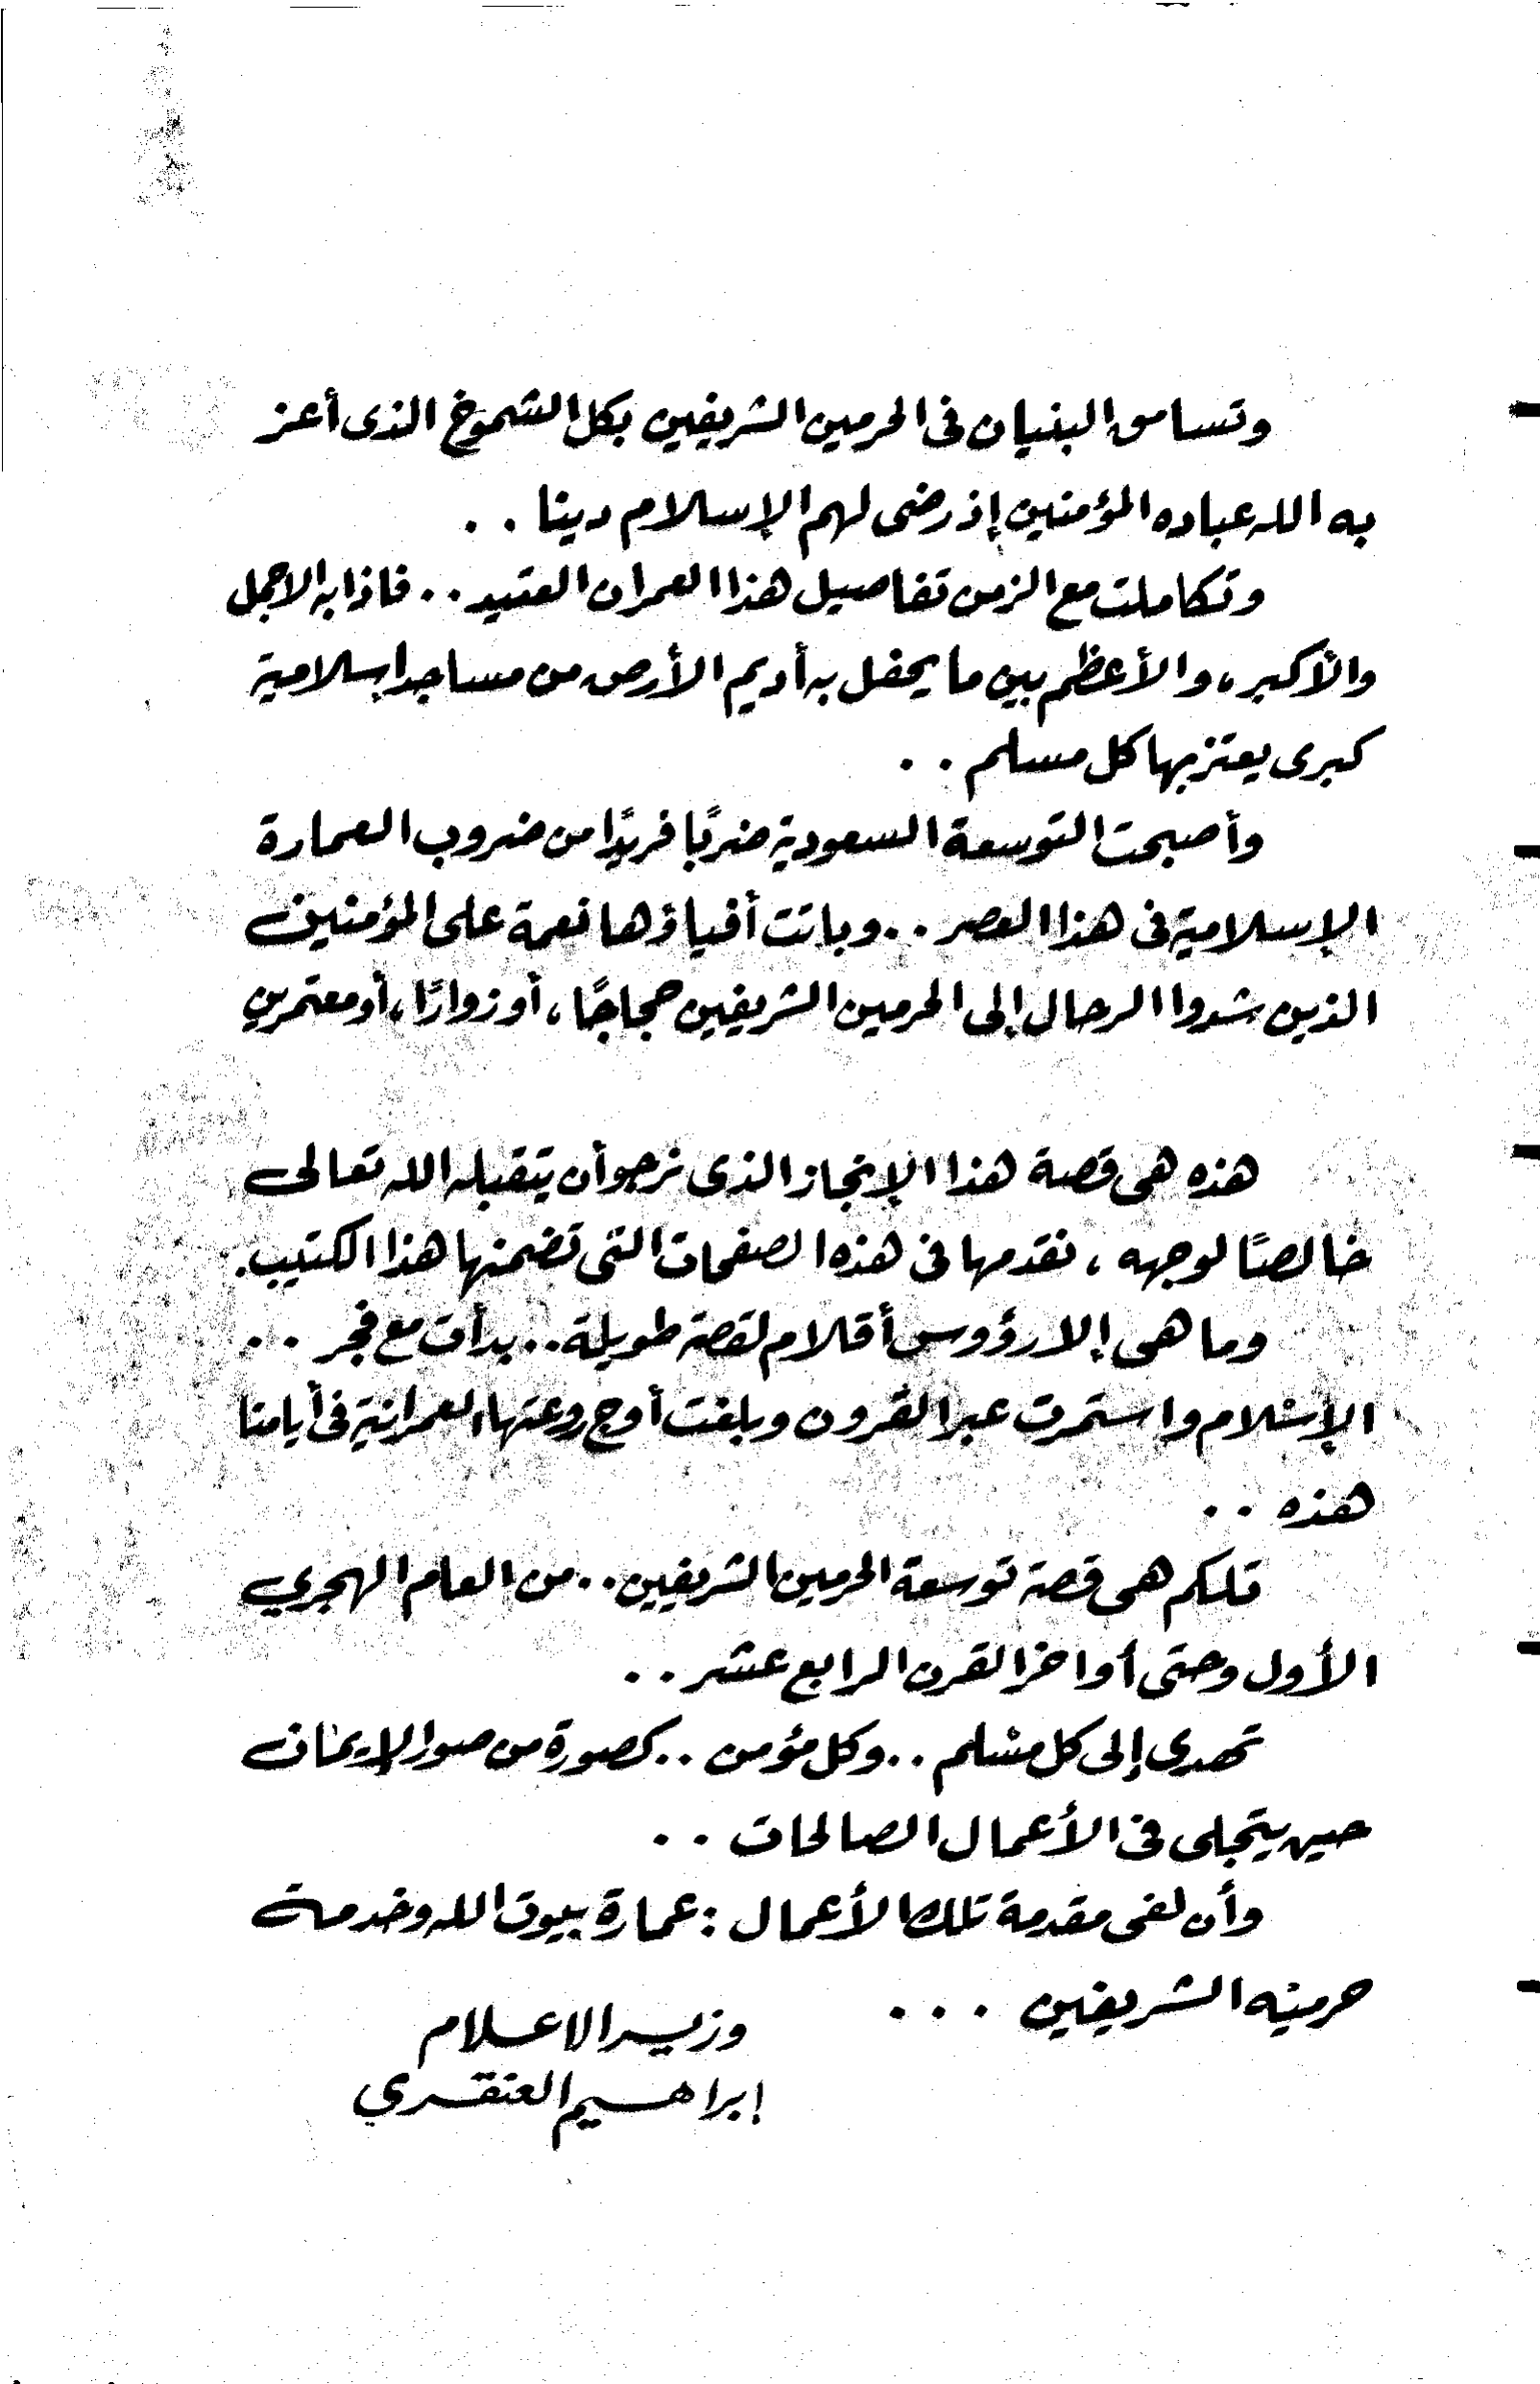 وتسامى البنيان فى الحرمين الشريفين بكل الشموخ الذى أعز
به الله عباده المؤمنين إذ رضى لهم الإسلام دينا . .
وتكاملت مع الزمن تفاصيل هذا العمران العتيد . . فاذا به الاجمل
والأكبر، والأعظم بين ما يحفل به أديم الأرض من مساجد إسلامية
كبرى يعتز بها كل مسلم . .
وأصبحت التوسعة السعودية ضربًا فريدًا من ضروب العمارة
الإسلامية فى هذا العصر . . وباتت أفياؤها نعمة على المؤمنين
الذين شدوا الرحال إلى الحرمين الشريفين حجاجًا، أو زوارًا، أو معتمرين
هذه هى قصة هذا الإنجاز الذى نرجو أن يتقبله الله تعالى
خالصًا لوجهه ، نقدمها فى هذه الصفحات التى تضمنها هذا الكتيب.
وما هى إلا رؤوس أقلام لقصة طويلة . . بدأت مع فجر . .
الإسلام واستمرت عبر القرون وبلغت أوج روعتها العمرانية فى أيامنا
هذه . .
تلكم هى قصة توسعة الحرمين الشريفين . . من العام الهجري
الأول وحتى أواخر القرن الرابع عشر . .
تهدى إلى كل مسلم . . وكل مؤمن . . كصورة من صور الإيمان
حين يتجلى فى الأعمال الصالحات . .
وأن لفى مقدمة تلك الأعمال : عمارة بيوت الله وخدمة
حرميه الشريفين . . .
وزير الاعلام
إبراهيم العنقري